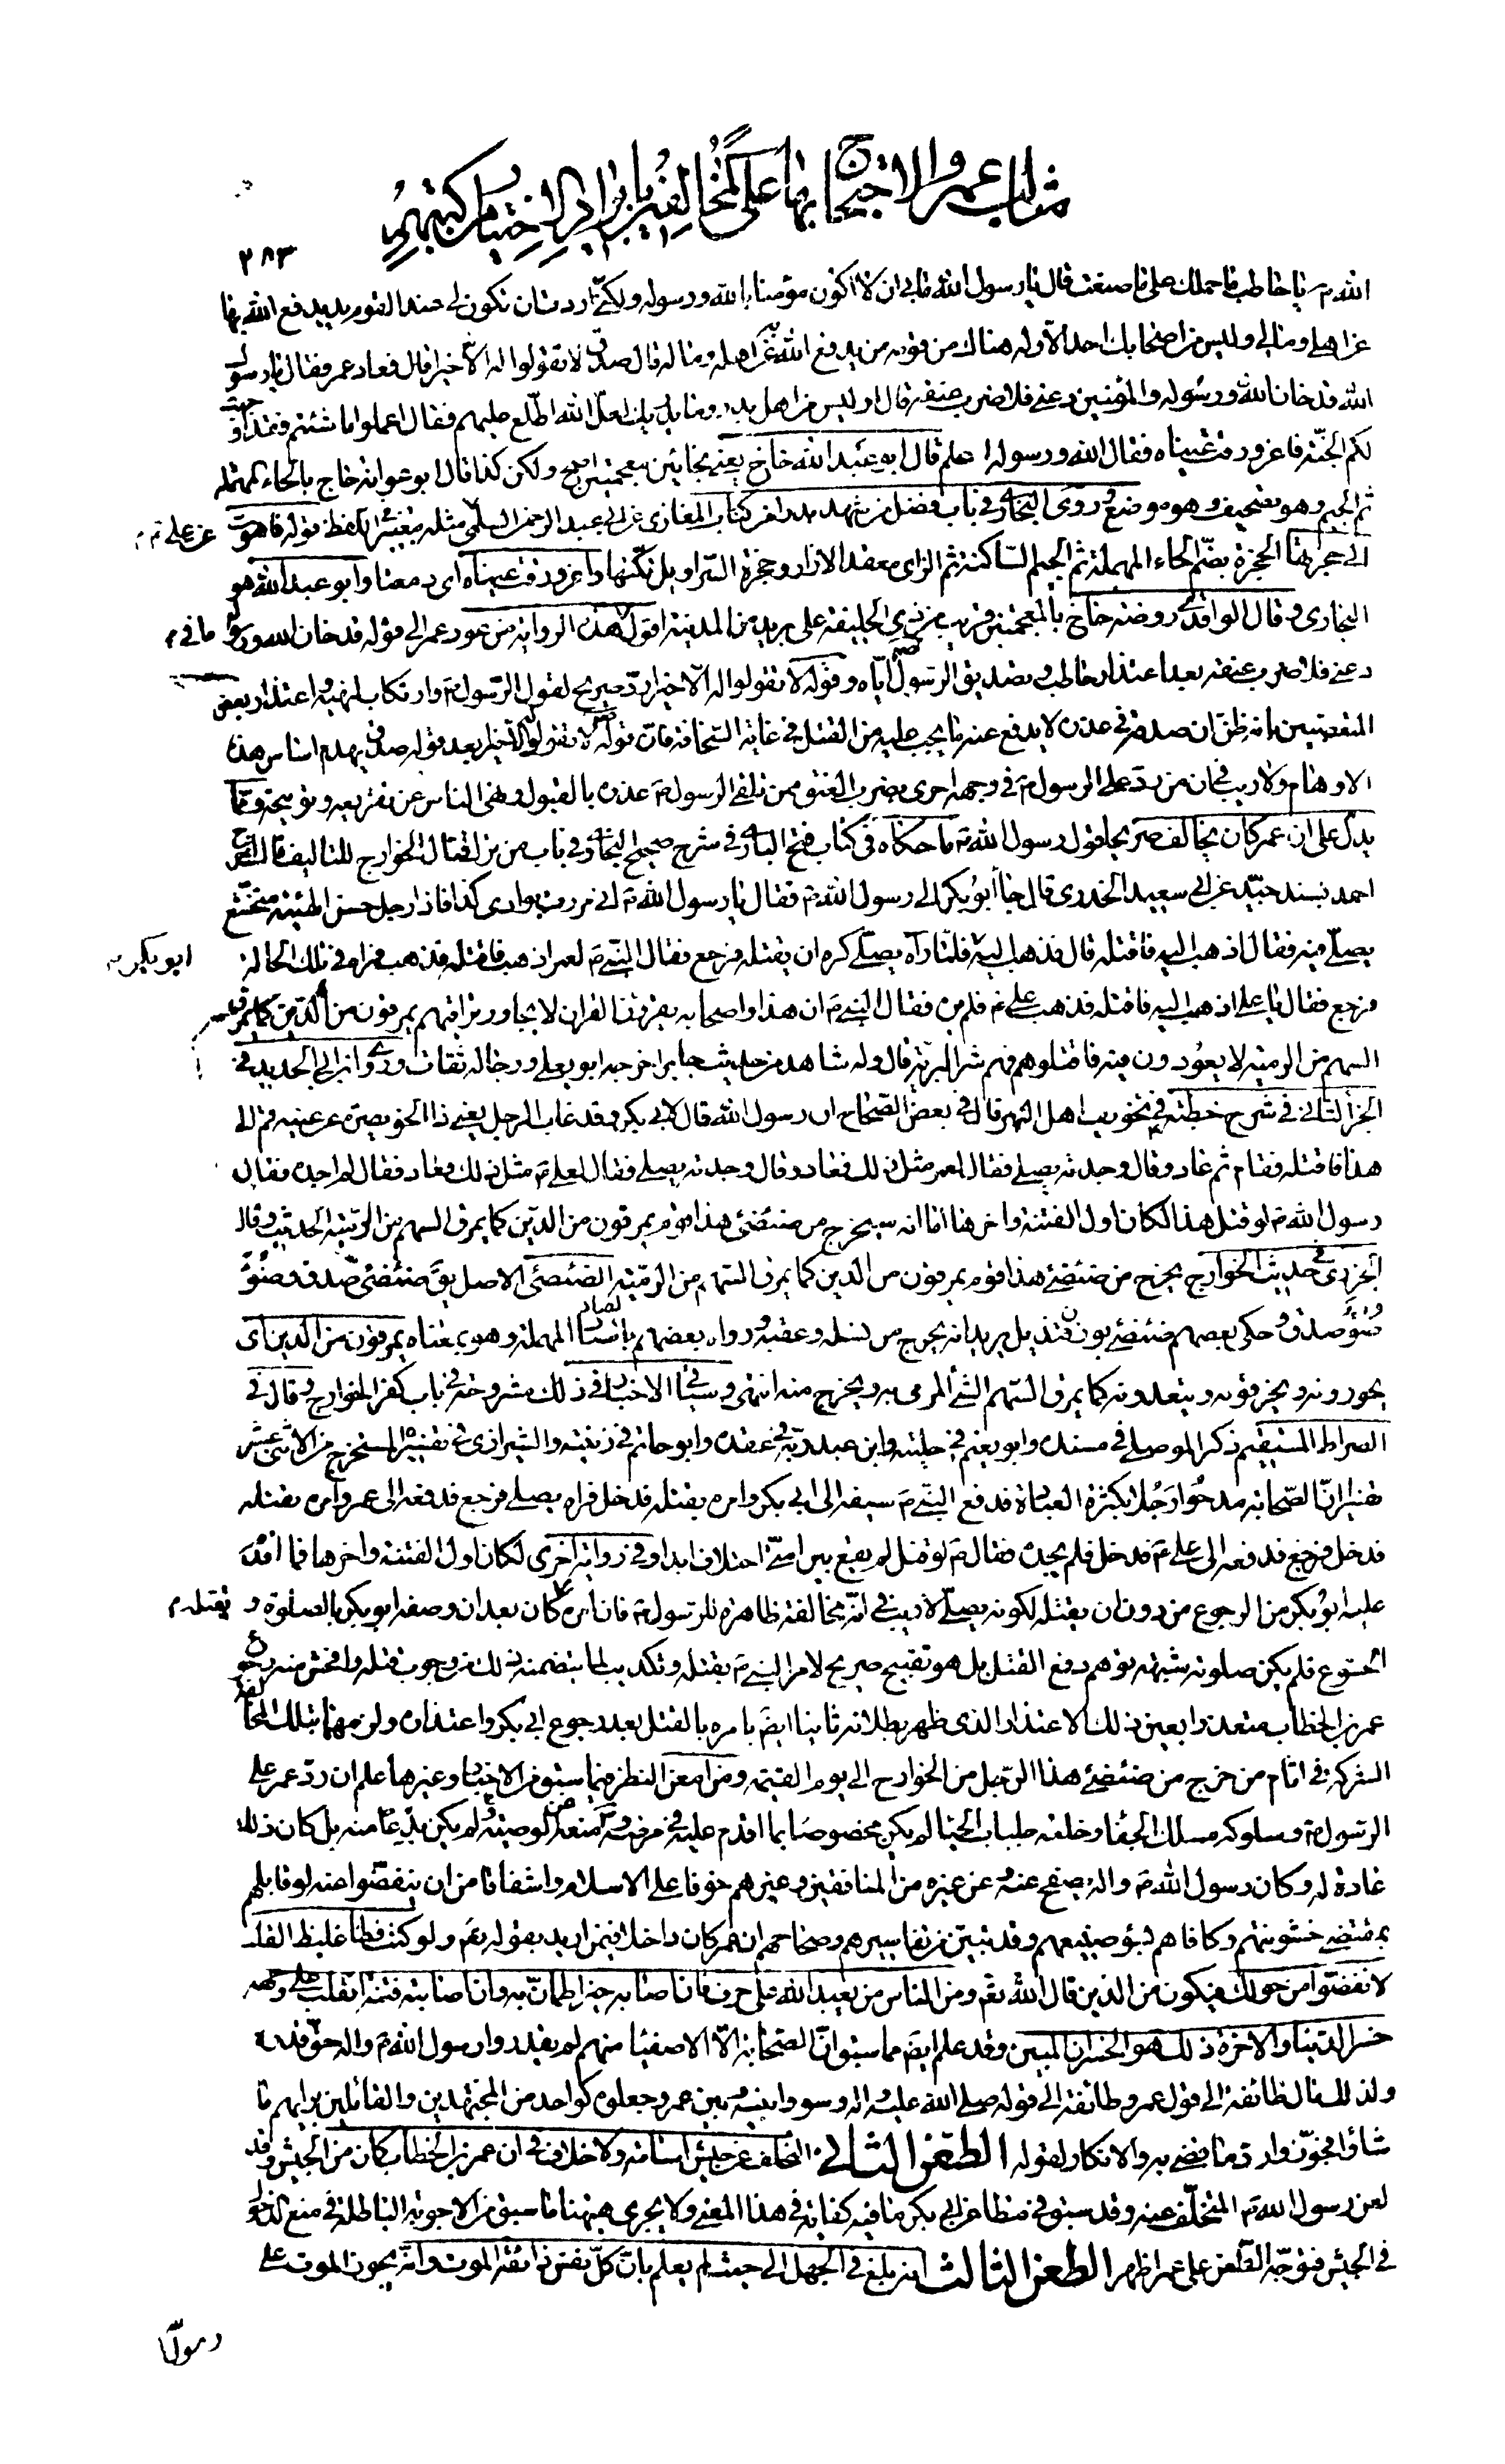 مثالب عمر والاحتجاج بها على المخالفين بايراد الاخبار من كتبهم
٢٨٣
الله م يا حاطب ما حملك على ما صنعت قال يا رسول الله ما بى ان لا اكون مؤمنا بالله ورسوله ولكنّى اردت ان تكون لى عند القوم يد يدفع الله بها
عن اهلى ومالى وليس من اصحابك احد الّا وله هناك من قومه من يدفع الله به عن اهله وماله قال صدق لا تقولوا له الّا خيرا قال فعاد عمر فقال يا رسول
الله قد خان الله ورسوله والمؤمنين دعنى فلاضرب عنقه قال او ليس من اهل بدر وما يدريك لعلّ الله اطّلع عليهم فقال اعملوا ما شئتم فقد اوجبت
لكم الجنّة فاغرورقت عيناه فقال الله ورسوله اعلم قال ابو عبد الله خاخ يعنى بخائين معجمتين اصح ولكن كذا قال ابو عوانة حاج بالحاء المهملة
ثم الجيم وهو تصحيف وهو موضع وروى البخارى فى باب فضل من شهد بدرا من كتاب المغازى عن ابى عبد الرحمن السلمى مثله بتغيير فى اللفظ قوله فاهوت
عن على م
الى حجزتها الحجزة بضمّ الحاء المهملة ثم الجيم السّاكنة ثم الزاى معقد الازار وحجزة السّراويل تكّتها واغرورقت عيناه اى دمعتا وابو عبد الله هو
البخارى وقال الواقدى روضة خاخ بالمعجمتين قريب من ذى الحليفة على بريد من المدينة اقول هذه الرواية من عود عمر الى قوله قد خان الله ورسوله
ما فى م
دعنى فلاضرب عنقه بعد اعتذار حاطب وتصديق الرسول ص ايّاه وقوله لا تقولوا له الّا خيرا ردّ صريح لقول الرّسول م وارتكاب لنهيه واعتذار بعض
المتعصبين بانه ظنّ ان صدقه فى عذره لا يدفع عنه ما يجب عليه من القتل فى غاية السّخافة فان قوله ص لا تقولوا له الّا خيرا بعد قوله صدق يهدم اساس هذه
الاوهام ولا ريب فى ان من ردّ على الرسول م فى وجهه احرى بضرب العنق ممن تلقى الرسول م عذره بالقبول ونهى الناس عن تقريعه وتوبيخه وممّا
يدلّ على ان عمر كان يخالف صريحا قول رسول الله م ما حكاه فى كتاب فتح البارى فى شرح صحيح البخارى فى باب من ترك قتال الخوارج للتاليف قال اخرج
احمد بسند جيّد عن ابى سعيد الخدرى قال جاء أبو بكر الى رسول الله م فقال يا رسول الله م انى مررت بوادى كذا فاذا رجل حسن الهيئة متخشّع
يصلّى فيه فقال اذهب اليه فاقتله قال فذهب اليه فلمّا رآه يصلّى كره ان يقتله فرجع فقال النبى م لعمر اذهب فاقتله فذهب فراه فى تلك الحالة
ابو بكر م
فرجع فقال يا على اذهب اليه فاقتله فذهب على ع فلم يره فقال النبى م ان هذا واصحابه يقرؤن القران لا يجاوز تراقيهم يمرقون من الدّين كما يمرق
السهم من الرمية لا يعودون فيه فاقتلوهم فهم شر البريّة قال وله شاهد من حديث جابر اخرجه ابو يعلى ورجاله ثقات وروى ابن ابى الحديد فى
الجزء الثانى فى شرح خطبته م فى تخويف اهل النهر قال فى بعض الصّحاح ان رسول الله قال لابى بكر وقد غاب الرجل يعنى ذا الخويصرة عن عينه قم الى
هذا فاقتله فقام ثم عاد وقال وجدته يصلى فقال لعمر مثل ذلك فعاد وقال وجدته يصلى فقال لعلى م مثل ذلك فعاد فقال لم اجده فقال
رسول الله م لو قتل هذا لكان اول الفتنة واخرها اما انه سيخرج من ضئضئ هذا قوم يمرقون من الدّين كما يمرق السهم من الرميّة الحديث وقال
الجزرى فى حديث الخوارج يخرج من ضئضئ هذا قوم يمرقون من الدين كما يمرق السّهم من الرميّة الضئضئ الاصل يقال ضئضئ صدق وضؤضؤ
صدق وحكى بعضهم ضئضئ بوزن قنديل يريد انه يخرج من نسله وعقبه ورواه بعضهم بالصاد المهملة وهو بمعناه يمرقون من الدين اى
يجوزونه ويخرقونه ويتعدونه كما يمرق السّهم الشّئ المرمى به ويخرج منه انتهى وسياتى الاخبار فى ذلك مشروحة فى باب كفر الخوارج وقال فى
الصراط المستقيم ذكر الموصلى فى مسنده وابو نعيم فى حليته وابن عبد ربّه فى عقده وابو حاتم فى زينته والشيرازى فى تفسيره المستخرج من الاثنى عشر
تفسيرا انّ الصّحابة مدحوا رجلا بكثرة العبادة فدفع النّبى م سيفه الى ابى بكر وامره بقتله فدخل فراه يصلى فرجع فدفعه الى عمر وامره بقتله
فدخل فرجع فدفعه الى على ع فدخل فلم يجده فقال م لو قتل لم يقع بين امّتى اختلاف ابدا وفى رواية اخرى لكان اول الفتنة واخرها فما اقدم
عليه ابو بكر من الرجوع من دون ان يقتله لكونه يصلّى لا ريب فى انّه مخالفة ظاهرة للرسول م فان امره كان بعد ان وصفه ابو بكر بالصلوة و
بقتله م
الخشوع فلم يكن صلوته شبهة توهم دفع القتل بل هو تقبيح صريح لامر النبى م بقتله وتكذيب لما يتضمنه ذلك من وجوب قتله وافحش منه رجوع
عمر بن الخطاب معتذرا بعين ذلك الاعتذار الذى ظهر بطلانه ثانيا ايضا بامره بالقتل بعد رجوع ابى بكر واعتذاره ولزمهما بتلك المخالفة
الشركة فى اثام من خرج من ضئضئ هذا الرّجل من الخوارج الى يوم القيمة ومن امعن النظر فيما سبق من الاخبار وغيرها علم ان ردّ عمر على
الرّسول م وسلوكه مسلك الجفاء وخلعه جلباب الحياء لم يكن مخصوصا بما اقدم عليه فى مرضه ص ومنعه عن الوصيّة لم يكن بدعا منه بل كان ذلك
عادة له وكان رسول الله م واله يصفح عنه وعن غيره من المنافقين وغيرهم خوفا على الاسلام واشفاقا من ان ينفضّوا عنه لو قابلهم
بمقتضى خشونتهم وكافاهم بسوء صنيعهم وقد تبيّن من تفاسيرهم وصحاحهم ان عمر كان داخلا فيمن اريد بقوله تعالى ولو كنت فظا غليظ القلب
لانفضّوا من حولك فيكون من الذين قال الله تع ومن الناس من يعبد الله على حرف فان اصابه خير اطمانّ به وان اصابته فتنة انقلب على وجهه
خسر الدّنيا والاخرة ذلك هو الخسران المبين وقد علم ايضا مما سبق انّ الصّحابة الّا الاصفياء منهم لم يقدروا رسول الله م واله حقّ قدره
ولذلك مال طائفة الى قول عمر وطائفة الى قوله صلى الله عليه واله وسووا بينه وبين عمر وجعلوه كواحد من المجتهدين والقائلين برايهم ما
شاؤا فجوّزوا ردّ ما قضى به والانكار لقوله الطّعن الثانى التخلف عن جيش اسامة ولا خلاف فى ان عمر بن الخطاب كان من الجيش وقد
لعن رسول الله م المتخلّف عنه وقد سبق فى مطاعن ابى بكر ما فيه كفاية فى هذا المعنى ولا يجرى ههنا ما سبق من الاجوبة الباطلة فى منع الدخول
فى الجيش فتوجّه الطّعن على عمر اظهر الطعن الثالث انه بلغ فى الجهل الى حيث لم يعلم بانّ كلّ نفس ذائقة الموت وانّه يجوز الموت على
رسول